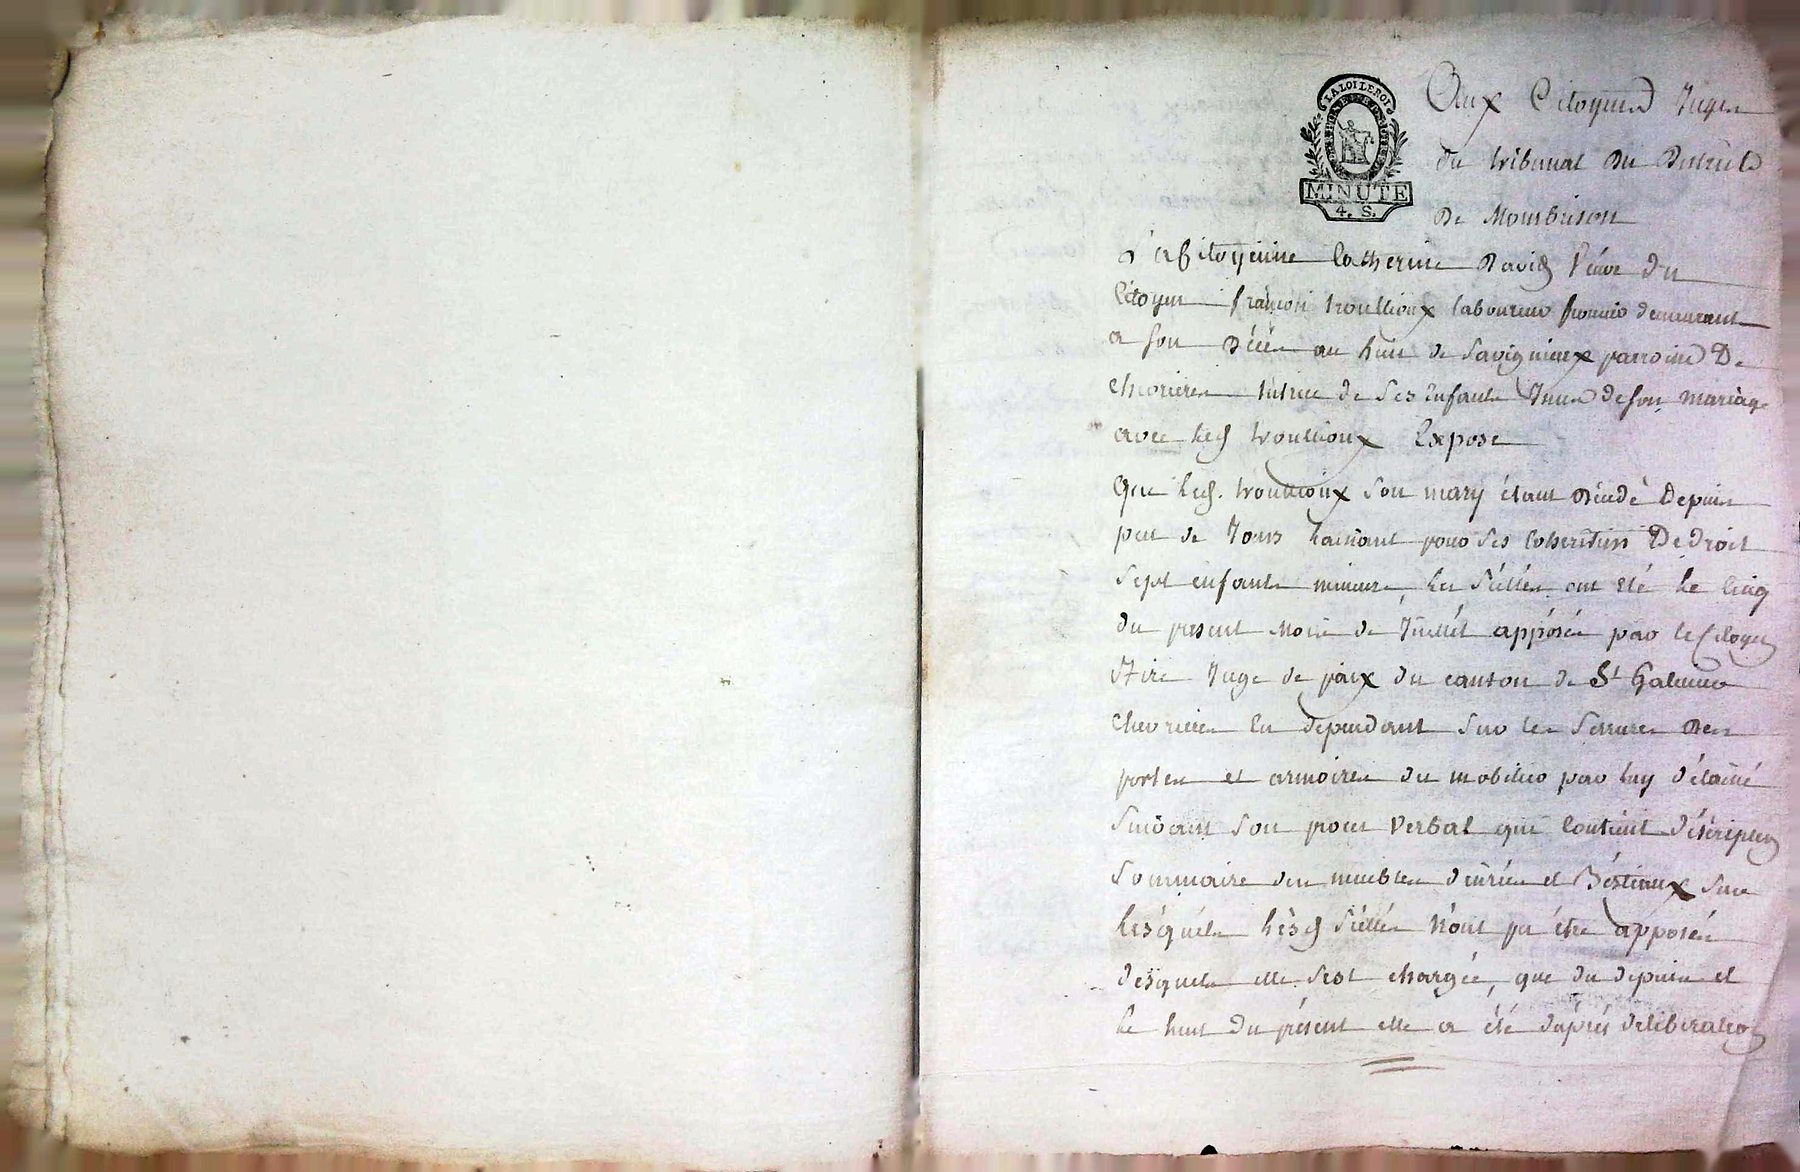 LA LOI LE ROI
MINUTE
4. S.
Aux Citoyens Juges
du tribunal Du District
De Montbrison
La Citoyenne Catherine David Veuve du
Citoyen françois troullioux laboureur fermier demeurant
a son Décès au lieu de Savignieux parroisse De
Chevrieres tutrice de Ses Enfants Issus de son mariage
avec led troullioux Expose
Que led. troullioux Son mary étant décédé Depuis
peu de Jours laissant pour Ses Coheritiers De droit
Sept enfants mineurs, les Scéllés ont été le Cinq
du présent mois de Juillet apposés par le Citoyen
Juge de paix du canton de St Galmier
Chevrieres En dépendant Sur les Serrures des
portes et armoires du mobilier par luy détaillé
Suivant Son procès Verbal qui Contient déscription
Sommaire des meubles dénrées et Béstiaux Sur
lésquéls lésd Scéllés n'ont pu être apposés
désquels elle s'est chargée, que du depuis et
le huit du présent elle a été d'aprés déliberation